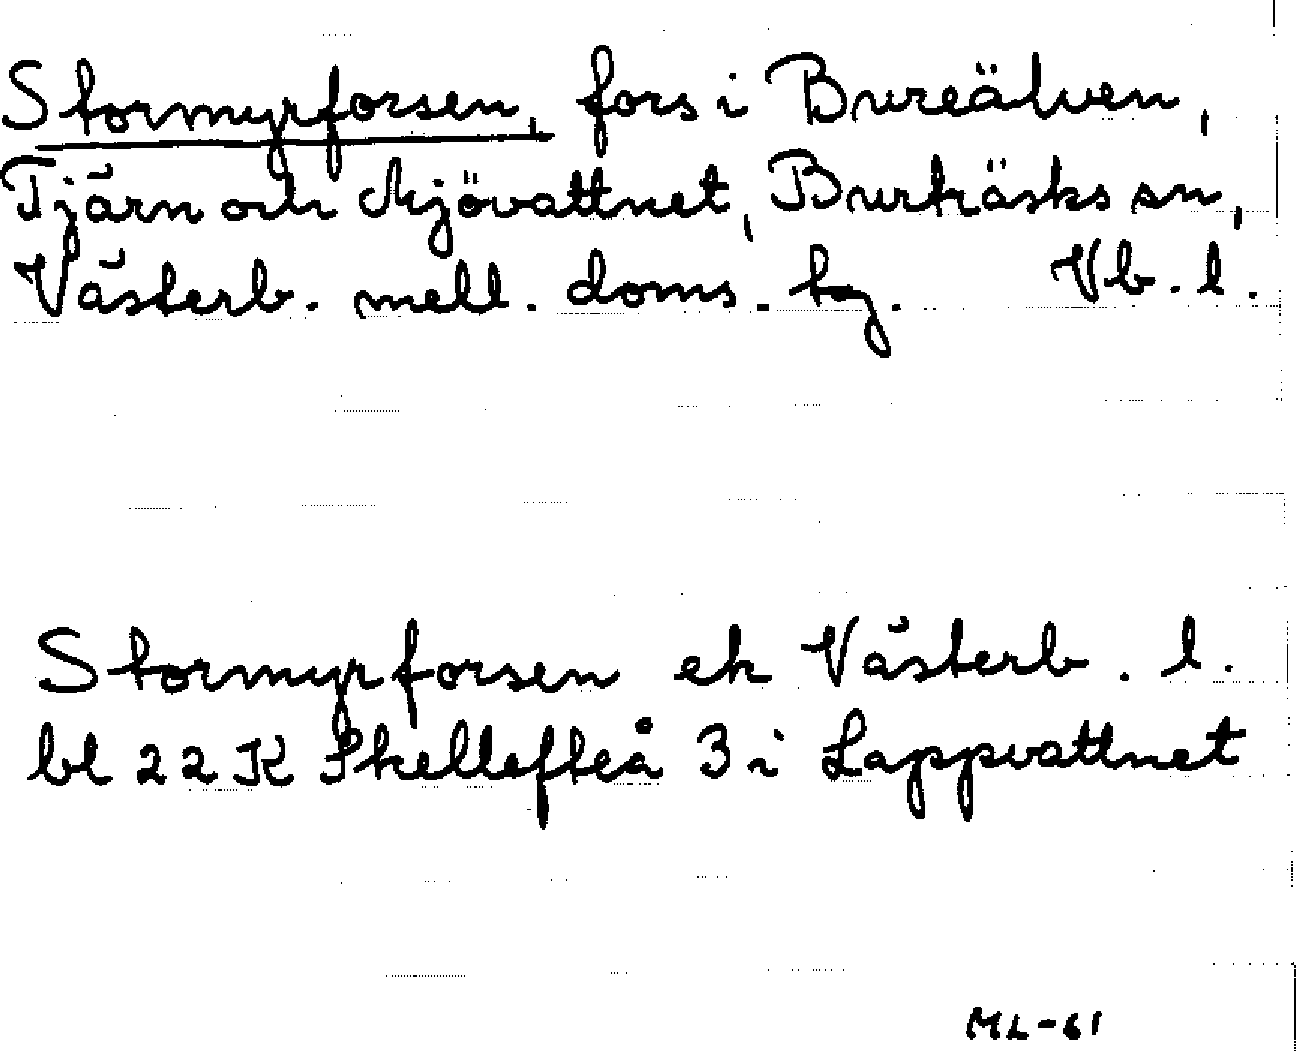 Stormyrforsen, fors i Bureälven,
Tjärn och Mjövattnet, Burträsks sn,
Västerb. mell. doms. tg. Vb. l.
Stormyrforsen ek Västerb. l.
bl 22 K Skellefteå 3 i Lappvattnet
ML-61